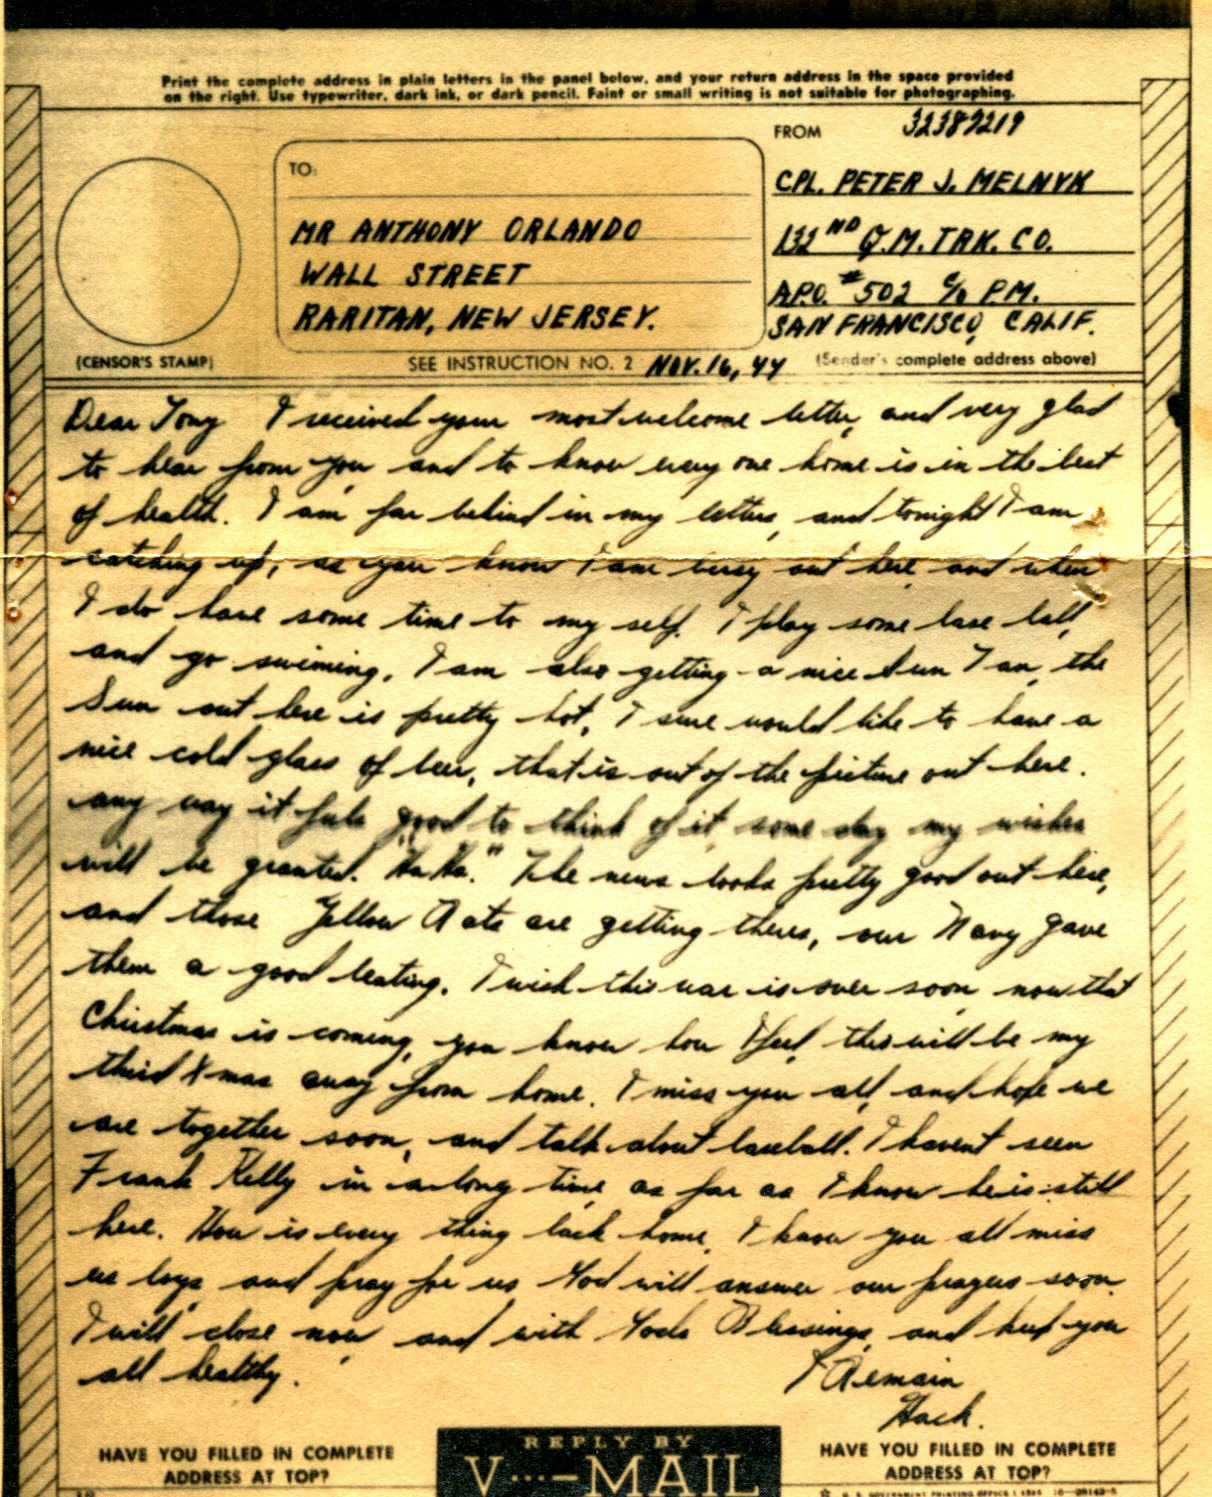 Print the complete address in plain letters in the panel below, and your return address in the space provided
on the right. Use typewriter, dark ink, or dark pencil. Faint or small writing is not suitable for photographing.
FROM
32389219
TO:
MR ANTHONY ORLANDO
WALL STREET
RARITAN, NEW JERSEY.
CPL. PETER J. MELNYK
132ND Q.M. TRK. CO.
A.P.O. #502 c/o P.M.
SAN FRANCISCO, CALIF.
(CENSOR'S STAMP)
SEE INSTRUCTION NO. 2
NOV. 16, 44
(Sender's complete address above)
Dear Tony I received your most welcome letter, and very glad
to hear from you, and to know every one home is in the best
of health. I am far behind in my letters, and tonight I am
catching up, as you know I am busy out here, and when
I do have some time to my self. I play some base ball,
and go swiming. I am also getting a nice Sun Tan, the
Sun out here is pretty hot, I sure would like to have a
nice cold glass of beer, that is out of the picture out here.
any way it feels good to think of it, some day my wishes
will be granted. "Ha Ha." The news looks pretty good out here,
and those Yellow Rats are getting theirs, our Navy gave
them a good beating. I wish this war is over soon, now that
Christmas is coming, you know how I feel, this will be my
third Xmas away from home. I miss you all, and hope we
are together soon, and talk about baseball. I havent seen
Frank Kelly in a long time, as far as I know he is still
here. How is every thing back home, I know you all miss
us boys, and pray for us God will answer our prayers soon.
I will close now, and with Gods Blessings, and keep you
all healthy.
I Remain
Hack.
HAVE YOU FILLED IN COMPLETE
ADDRESS AT TOP?
REPLY BY
V···—MAIL
HAVE YOU FILLED IN COMPLETE
ADDRESS AT TOP?
U. S. GOVERNMENT PRINTING OFFICE